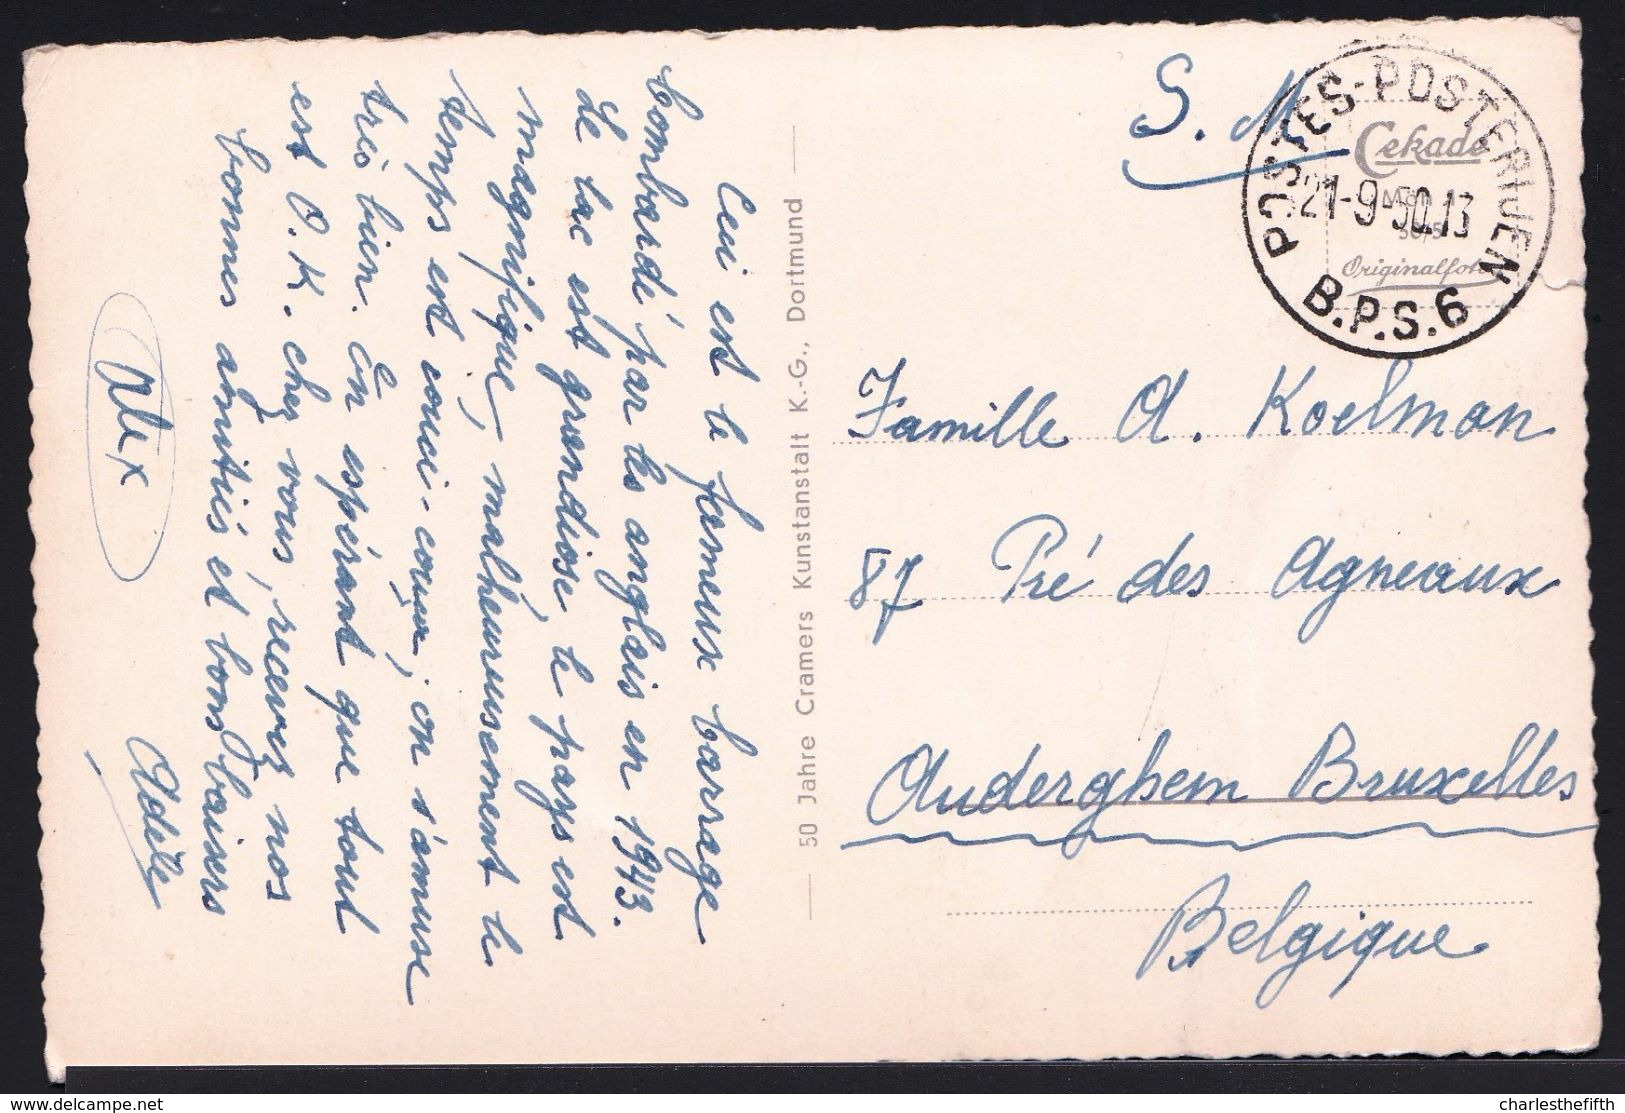 Ceci est le fameux barrage
bombardé par les anglais en 1943.
Le lac est grandiose, le pays est
magnifique, malheureusement le
temps est couci-couça, on s'amuse
très bien. En espérant que tout
est O.K. chez vous, recevez nos
bonnes amitiés et bons baisers
Adèle
Alex
50 Jahre Cramers Kunstanstalt K.-G., Dortmund
S.M.
POSTES-POSTERIJEN
21-9-50.13
B.P.S.6
Cekade
Originalfoto
Famille A. Koelman
87 Pré des Agneaux
Auderghem Bruxelles
Belgique
delcampe.net
charlesthefifth